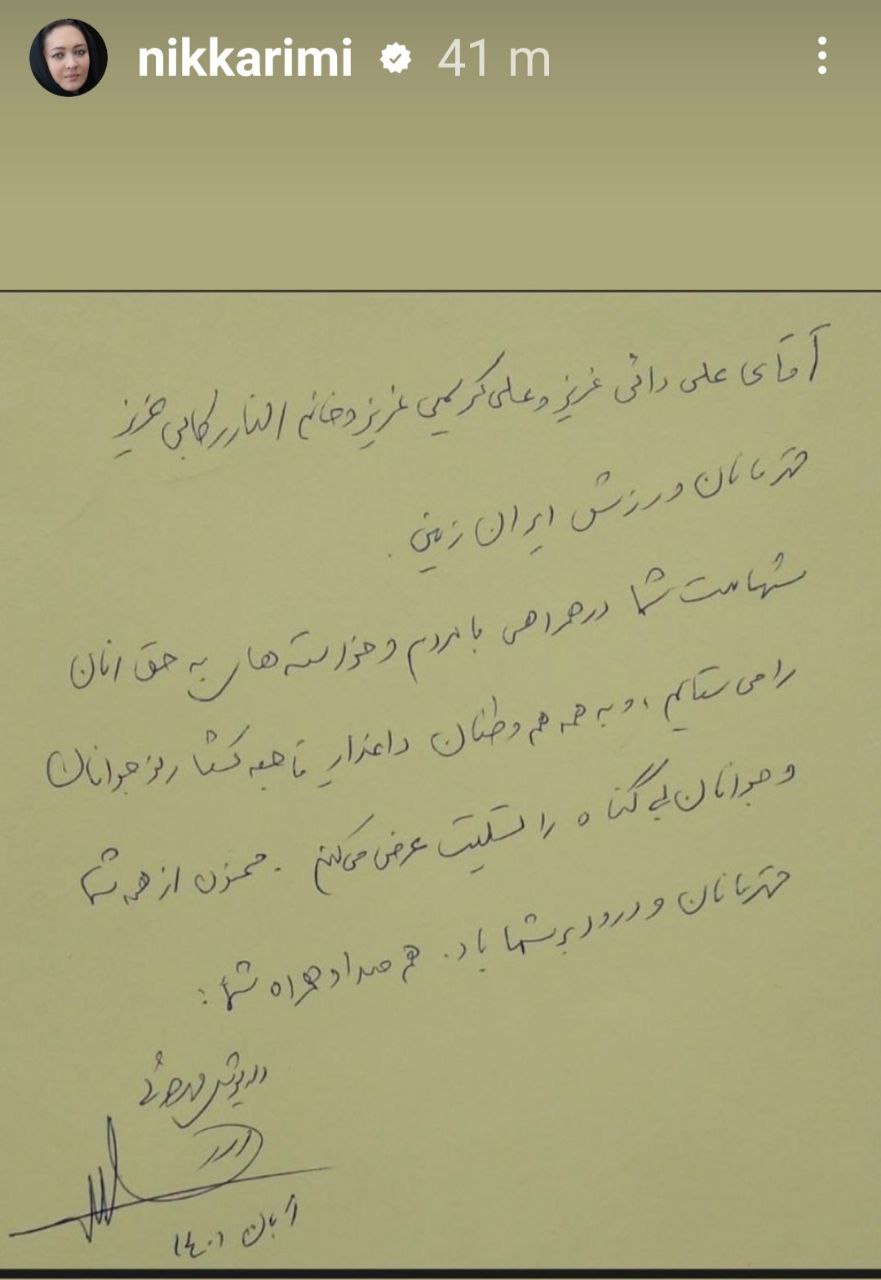 nikkarimi 41 m
آقای علی دائی عزیز و علی کریمی عزیز و خانم الناز رکابی عزیز
قهرمانان ورزش ایران زمین.
شهامت شما در همراهی با مردم و خواسته های به حق آنان
را می ستایم، و به همه هم وطنان داغدار فاجعه کشتار نوجوانان
و جوانان بی گناه را تسلیت عرض می کنم. ممنون از همه شما
قهرمانان و درود بر شما باد. هم صدا و همراه شما:
داریوش مهرجوئی
آبان ۱۴۰۱